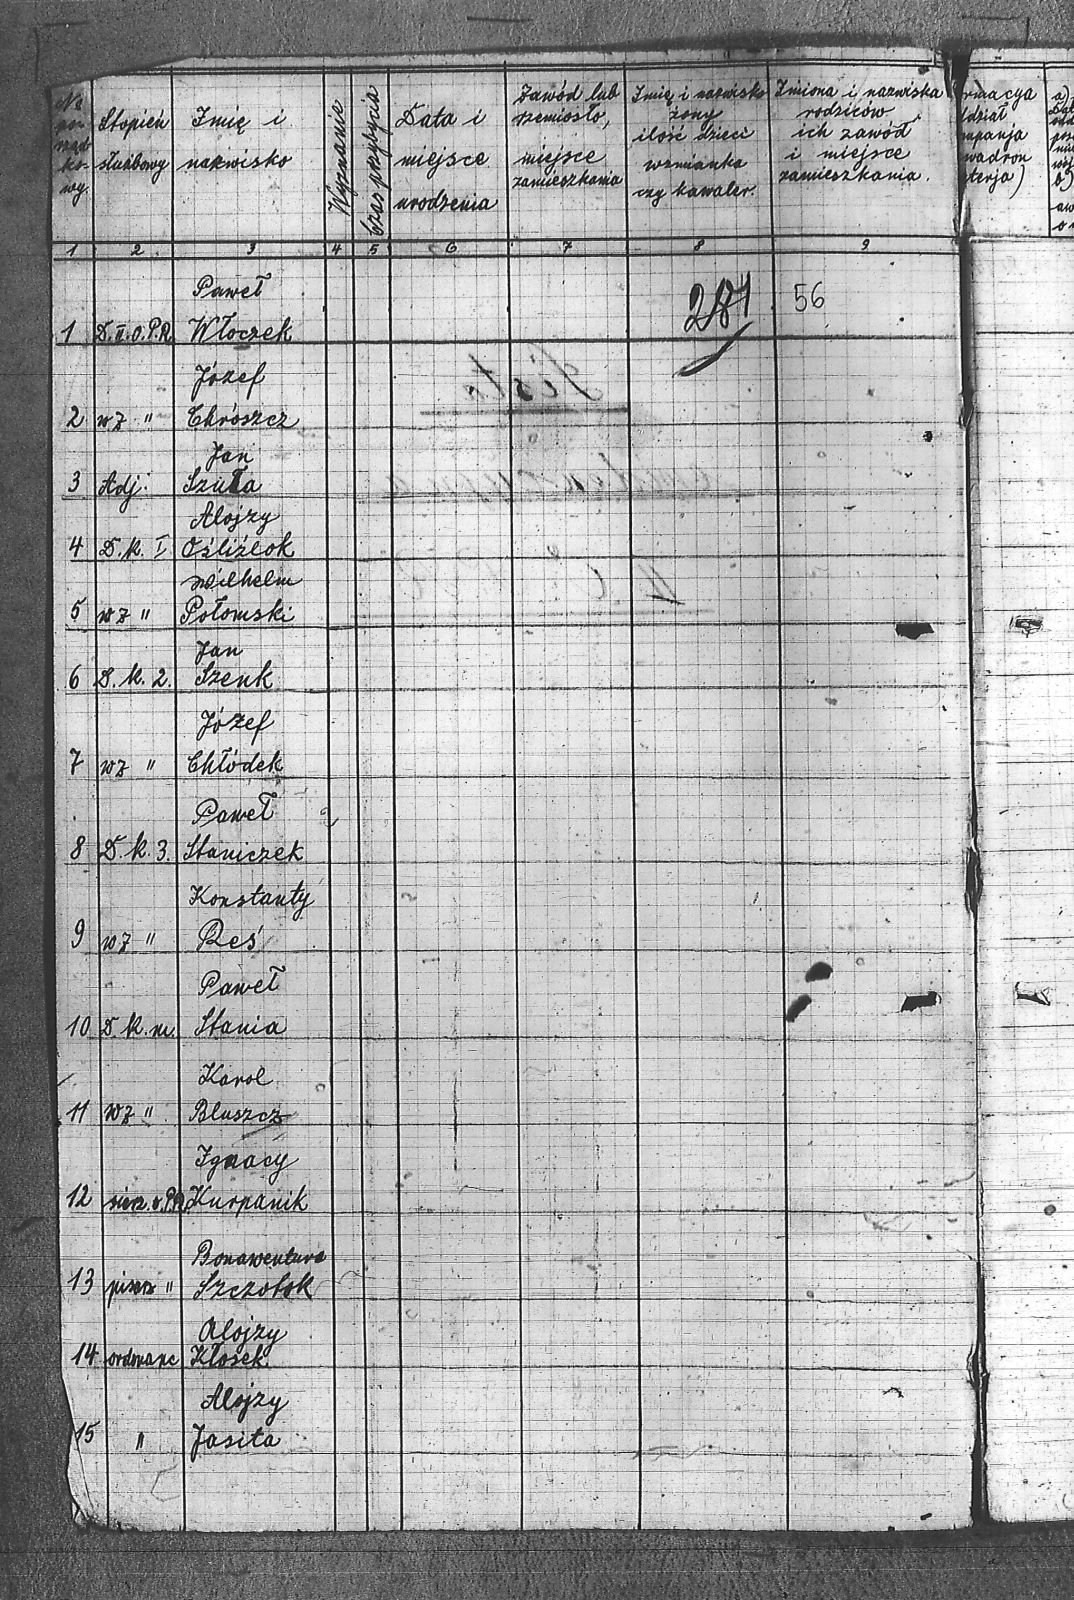 No po- rząd- ko- wy.
Stopień służbowy
Imię i nazwisko
Wyznanie
Czas przybycia
Data i miejsce urodzenia
Zawód lub rzemiosło, miejsce zamieszkania
Imię i nazwisko żony ilość dzieci wzmianka czy kawaler.
Imiona i nazwiska rodziców, ich zawód i miejsce zamieszkania.
rmacya
dział
mpanja
wadron
terja)
1 2 3 4 5 6 7 8 9
Paweł
284 56
1 D. II. O. P. R. Włoczek
Józef
2 wz " Chrószcz
Jan
3 Adj. Szuła
Alojzy
4 D. k. I Ośliźlok
Wilhelm
5 wz " Połomski
Jan
6 D. k. 2. Szenk
Józef
7 wz " Chłódek
Paweł
8 D. k. 3. Staniczek
Konstanty
9 wz " Reś
Paweł
10 D. k. m. Stania
Karol
11 wz " Bluszcz
Ignacy
12 Kurpanik
Bonawentura
13 pisarz " Szczotok
Alojzy
14 ordonanc Kłosek
Alojzy
15 " Jasita